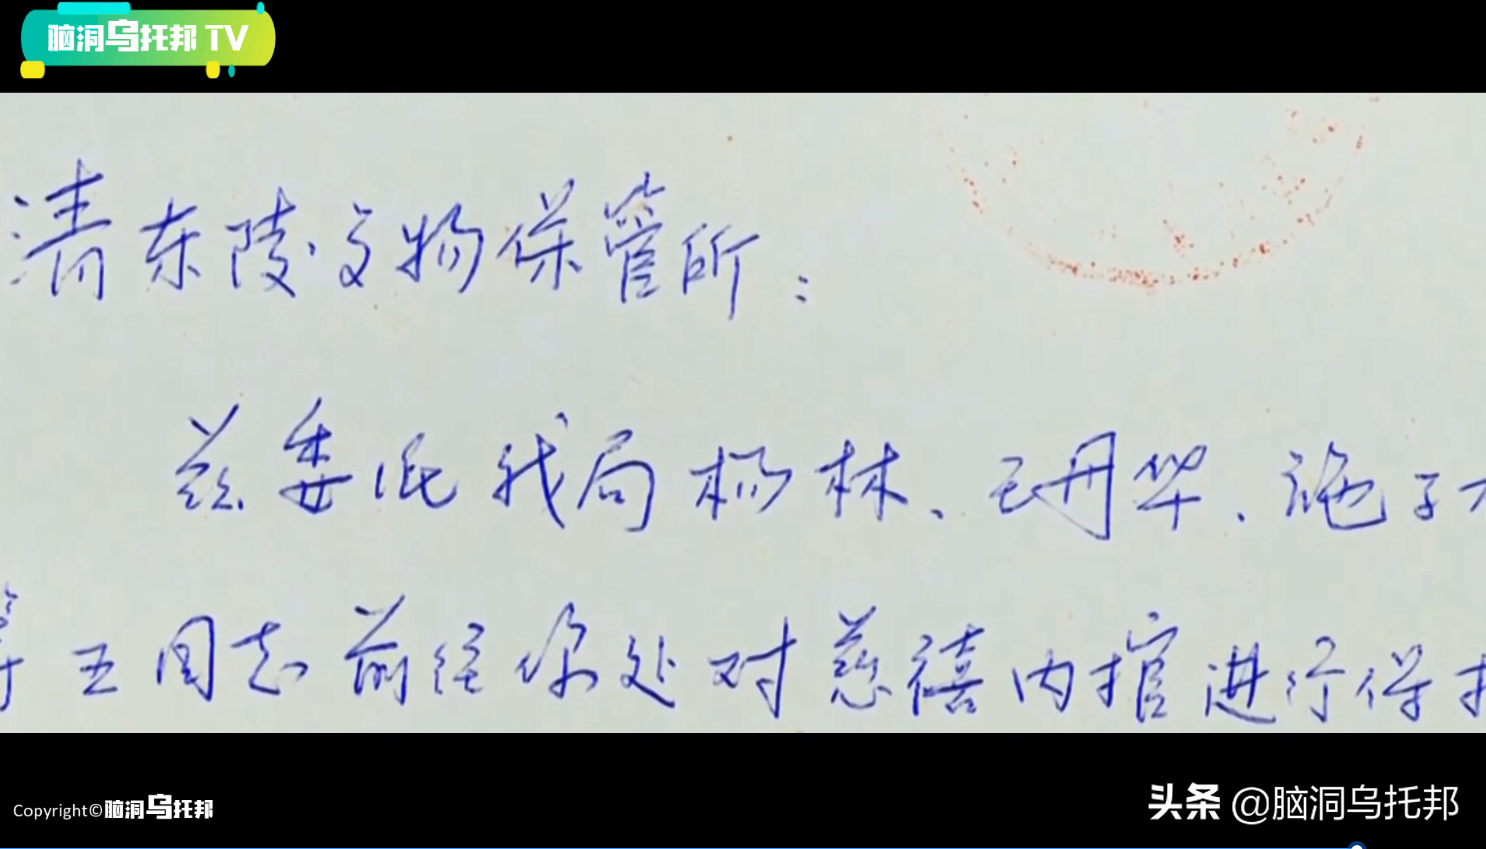 脑洞乌托邦 TV
清东陵文物保管所:
兹委派我局杨林、王珊华、施子
等五同志前往你处对慈禧内棺进行保
Copyright©脑洞乌托邦
头条 @脑洞乌托邦